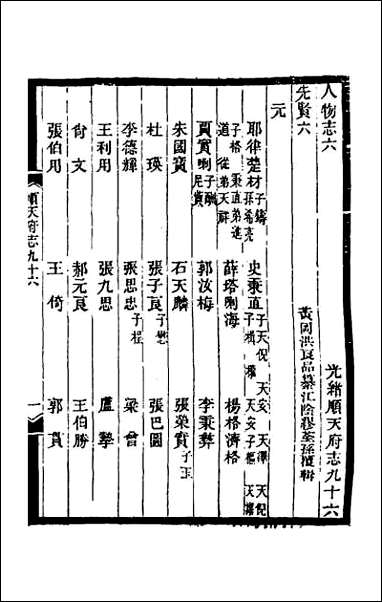 人物志六
光緒順天府志九十六
先賢六
黃岡洪良品纂江陰繆荃孫覆輯
元
耶律楚材 子鑄 孫希亮
史秉直 子天倪 天安 天澤 天倪
子楫 權 天安子樞 天澤
子格 秉直弟進
道 從弟天祥
薛塔剌海
楊格濟格
賈實喇 子酬尼黃
郭汝梅
李秉彝
朱國寶
石天麟
張榮實 子玉
杜瑛
張子良 子懋
張巴圖
李德輝
張思忠 子榥
梁曾
王利用
張九思
盧摯
尙文
郝元良
王伯勝
張伯用
王倚
郭貫
順天府志九十六
一